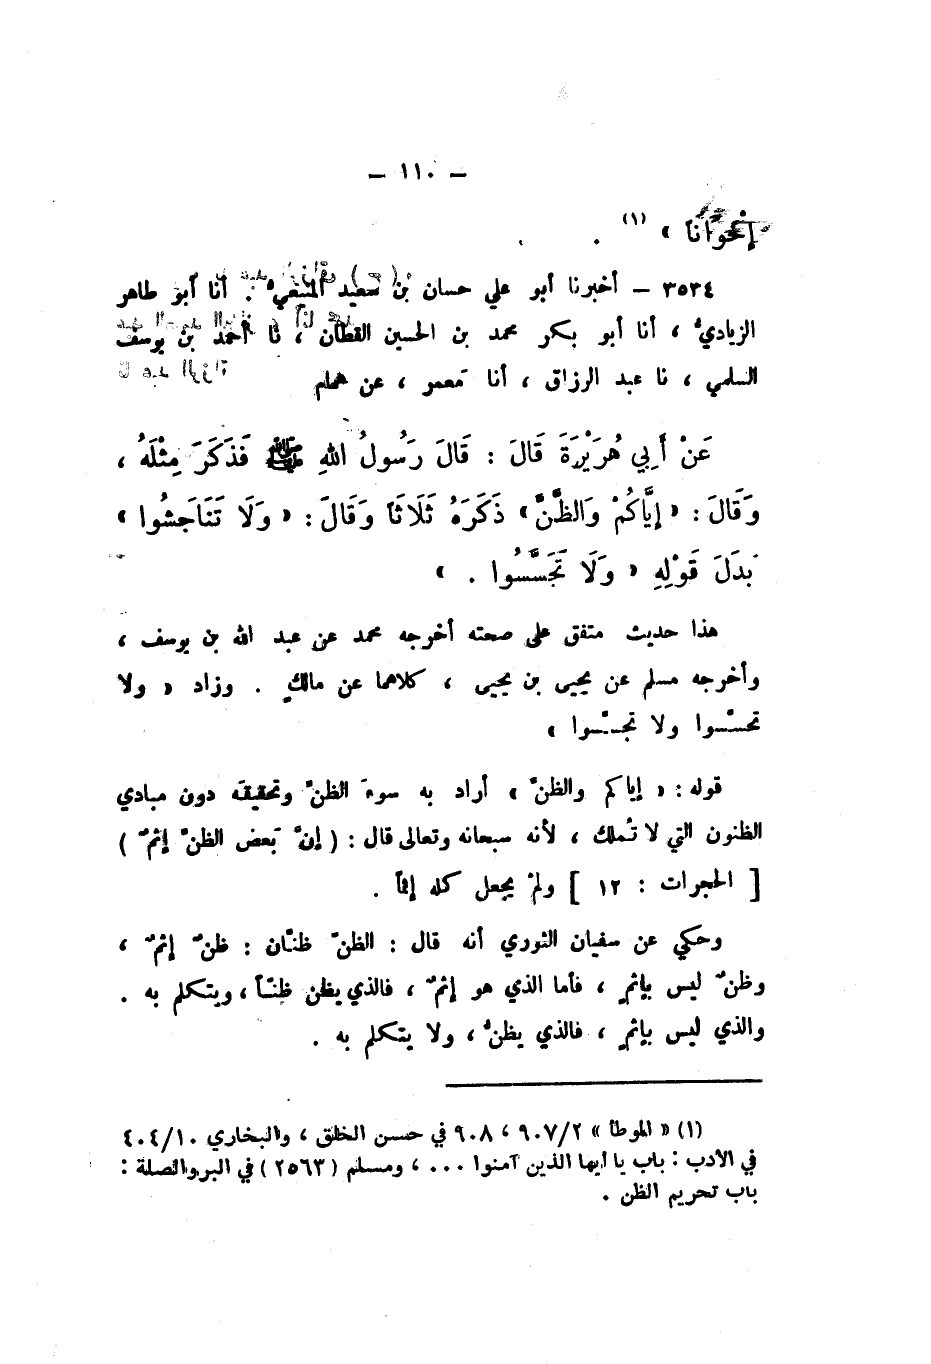 – ١١٠ –
إِخْوَاناً » (١) .
٣٥٣٤ – أخبرنا أبو علي حسان بن سعيد المنيعيُ . أنا أبو طاهر
الزياديُ ، أنا أبو بكر محمد بن الحسين القطان ، نا أحمد بن يوسف
السلمي ، نا عبد الرزاق ، أنا مَعمر ، عن همام
عَنْ أَبِي هُرَيْرَةَ قَالَ : قَالَ رَسُولُ اللهِ ﷺ فَذَكَرَ مِثْلَهُ ،
وَقَالَ : « إِيَّاكُمْ وَالظَّنَّ » ذَكَرَهُ ثَلَاثَاً وَقَالَ : « وَلَا تَنَاجَشُوا »
بَدَلَ قَوْلِهِ « وَلَا تَجَسَّسُوا . »
هذا حديث متفق على صحته أخرجه محمد عن عبد الله بن يوسف ،
وأخرجه مسلم عن يحيى بن يحيى ، كلاهما عن مالكٍ . وزاد « ولا
تحسّسوا ولا تجسّسوا »
قوله : « إياكم والظنّ » أراد به سوءَ الظنّ وتحقيقَه دون مبادي
الظنون التي لا تُملك ، لأنه سبحانه وتعالى قال : ( إنّ بَعض الظنّ إثمٌ )
[ الحجرات : ١٢ ] ولمْ يجعل كله إثماً .
وحكي عن سفيان الثوري أنه قال : الظنّ ظنّان : ظنٌ إثمٌ ،
وظنٌ ليس بإثمٍ ، فأما الذي هو إثمٌ ، فالذي يظن ظنّاً ، ويتكلم به .
والذي ليس بإثمٍ ، فالذي يظنُ ، ولا يتكلم به .
(١) « الموطأ » ٩٠٧/٢ ، ٩٠٨ في حسن الخلق ، والبخاري ٤٠٤/١٠
في الأدب : باب يا أيها الذين آمنوا ... ، ومسلم ( ٢٥٦٣ ) في البر والصلة :
باب تحريم الظن .